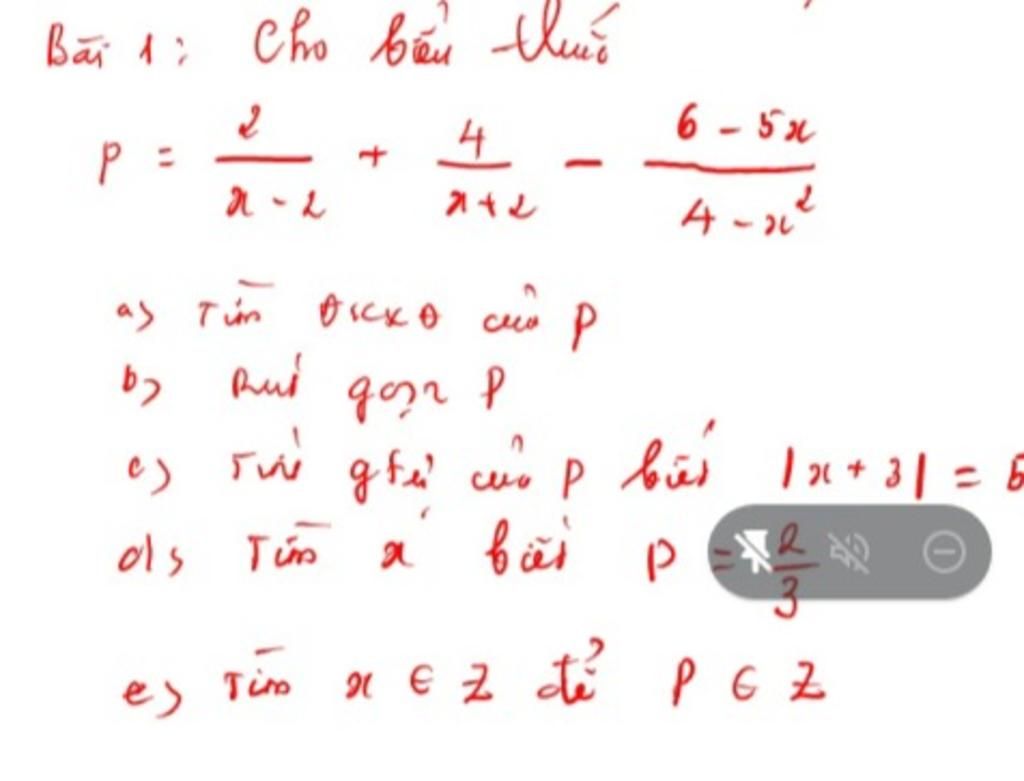 Bài 1: Cho biểu thức
P = 2/(x - 2) + 4/(x + 2) - (6 - 5x)/(4 - x²)
a) Tìm ĐKXĐ của P
b) Rút gọn P
c) Tính gtrị của P biết |x + 3| = 5
d) Tìm x biết P = 2/3
e) Tìm x ∈ Z để P ∈ Z